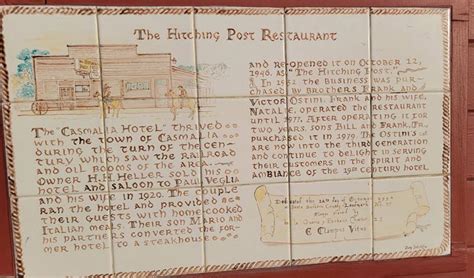 The Hitching Post Restaurant
The "Casmalia Hotel" thrived
with the town of Casmalia
during the turn of the cen-
tury which saw the railroad
and oil booms of the area.
Owner H.H. Heller sold his
hotel and saloon to Paul Veglia
and his wife in 1920. The couple
ran the hotel and provided
their guests with home-cooked
Italian meals. Their son Mario and
his partners converted the for-
mer hotel to a steakhouse
and re-opened it on October 12,
1946, as "The Hitching Post."
In 1952 the business was pur-
chased by brothers Frank and
Victor Ostini. Frank and his wife,
Natalie, operated the restaurant
until 1977. After operating it for
two years, sons Bill and Frank, Jr.
purchased it in 1979. The Ostini's
are now into the third generation
and continue to delight in serving
their customers in the spirit and
ambiance of the 19th century hotel.
Dedicated this
E Clampus Vitus